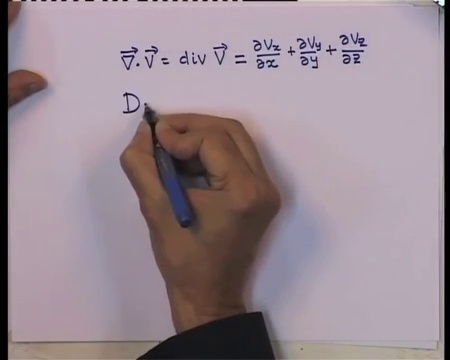 ∇⃗·V⃗ = div V⃗ = ∂Vx/∂x + ∂Vy/∂y + ∂Vz/∂z
D